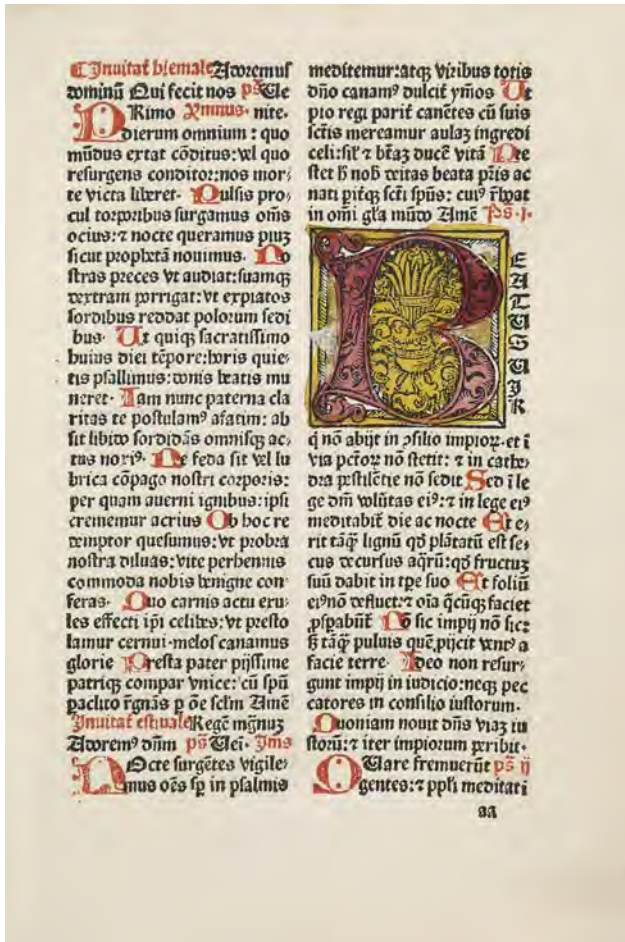 Inuitat̄ hiemale Adoremus
dominū Qui fecit nos p̄s Ue
PRimo Ymnus. nite.
dierum omnium : quo
mūdus extat cōditus: vel quo
resurgens conditor: nos mor⸗
te victa liberet. Pulsis pro⸗
cul torporibus surgamus om̄s
ocius: ⁊ nocte queramus piuꝫ
sicut prophetā nouimus. No
stras preces vt audiat: suamqꝫ
dextram porrigat: vt expiatos
sordibus reddat polorum sedi
bus. Ut quiqꝫ sacratissimo
huius diei tēpore: horis quie⸗
tis psallimus: donis beatis mu
neret. Iam nunc paterna cla
ritas te postulamꝰ afatim: ab
sit libido sordidās omnisqꝫ ac⸗
tus noxiꝰ. Ne feda sit vel lu
brica cōpago nostri corporis:
per quam auerni ignibus: ipsi
crememur acrius Ob hoc re
demptor quesumus: vt probra
nostra diluas: vite perhennis
commoda nobis benigne con
feras. Quo carnis actu exu⸗
les effecti ip̄i celibes: vt presto
lamur cernui. melos canamus
glorie Presta pater pijssime
patriqꝫ compar vnice: cū spū
paclito r̄gnās ꝑ oē sclm̄ Amē
Inuitat̄ estiuale Regē mḡnuꝫ
Adoremꝰ dn̄m p̄s Uēi. Yms
NOcte surgētes vigile⸗
mus oēs sꝑ in psalmis
meditemur: atqꝫ viribus totis
dn̄o canamꝰ dulcit̄ ymos Ut
pio regi parit̄ canētes cū suis
sc̄tis mereamur aulaꝫ ingredi
celi: sil̄ ⁊ bt̄aꝫ ducē vitā Pre
stet ħ nob̄ deitas beata pr̄is ac
nati pit̄qꝫ sc̄ti sp̄us: cuiꝰ r̄boat
in om̄i gl̄a mūdo Amē P̄s. j.
BEATUS UIR
q̄ nō abijt in ꝯsilio impioꝝ. et ī
via pc̄toꝝ nō stetit: ⁊ in cathe⸗
dra pestilētie nō sedit Sed ī le
ge dn̄i volūtas eiꝰ: ⁊ in lege eiꝰ
meditabit̄ die ac nocte Et e⸗
rit tāqꝫ lignū qd̄ plātatū est se⸗
cus decursus aq̄rū: qd̄ fructuꝫ
suū dabit in tp̄e suo Et foliū
eiꝰ nō defluet: ⁊ oīa q̄cūqꝫ faciet
ꝓsꝑabūt̄ No sic impij nō sic:
s̄ tāqꝫ puluis quē ꝓijcit vent ꝰ a
facie terre. Ideo non resur⸗
gunt impij in iudicio: neqꝫ pec
catores in consilio iustorum.
Quoniam nouit dn̄s viaꝫ iu
storū: ⁊ iter impiorum peribit.
QUare fremuerūt p̄s ij
gentes: ⁊ ppl̄i meditati
aa